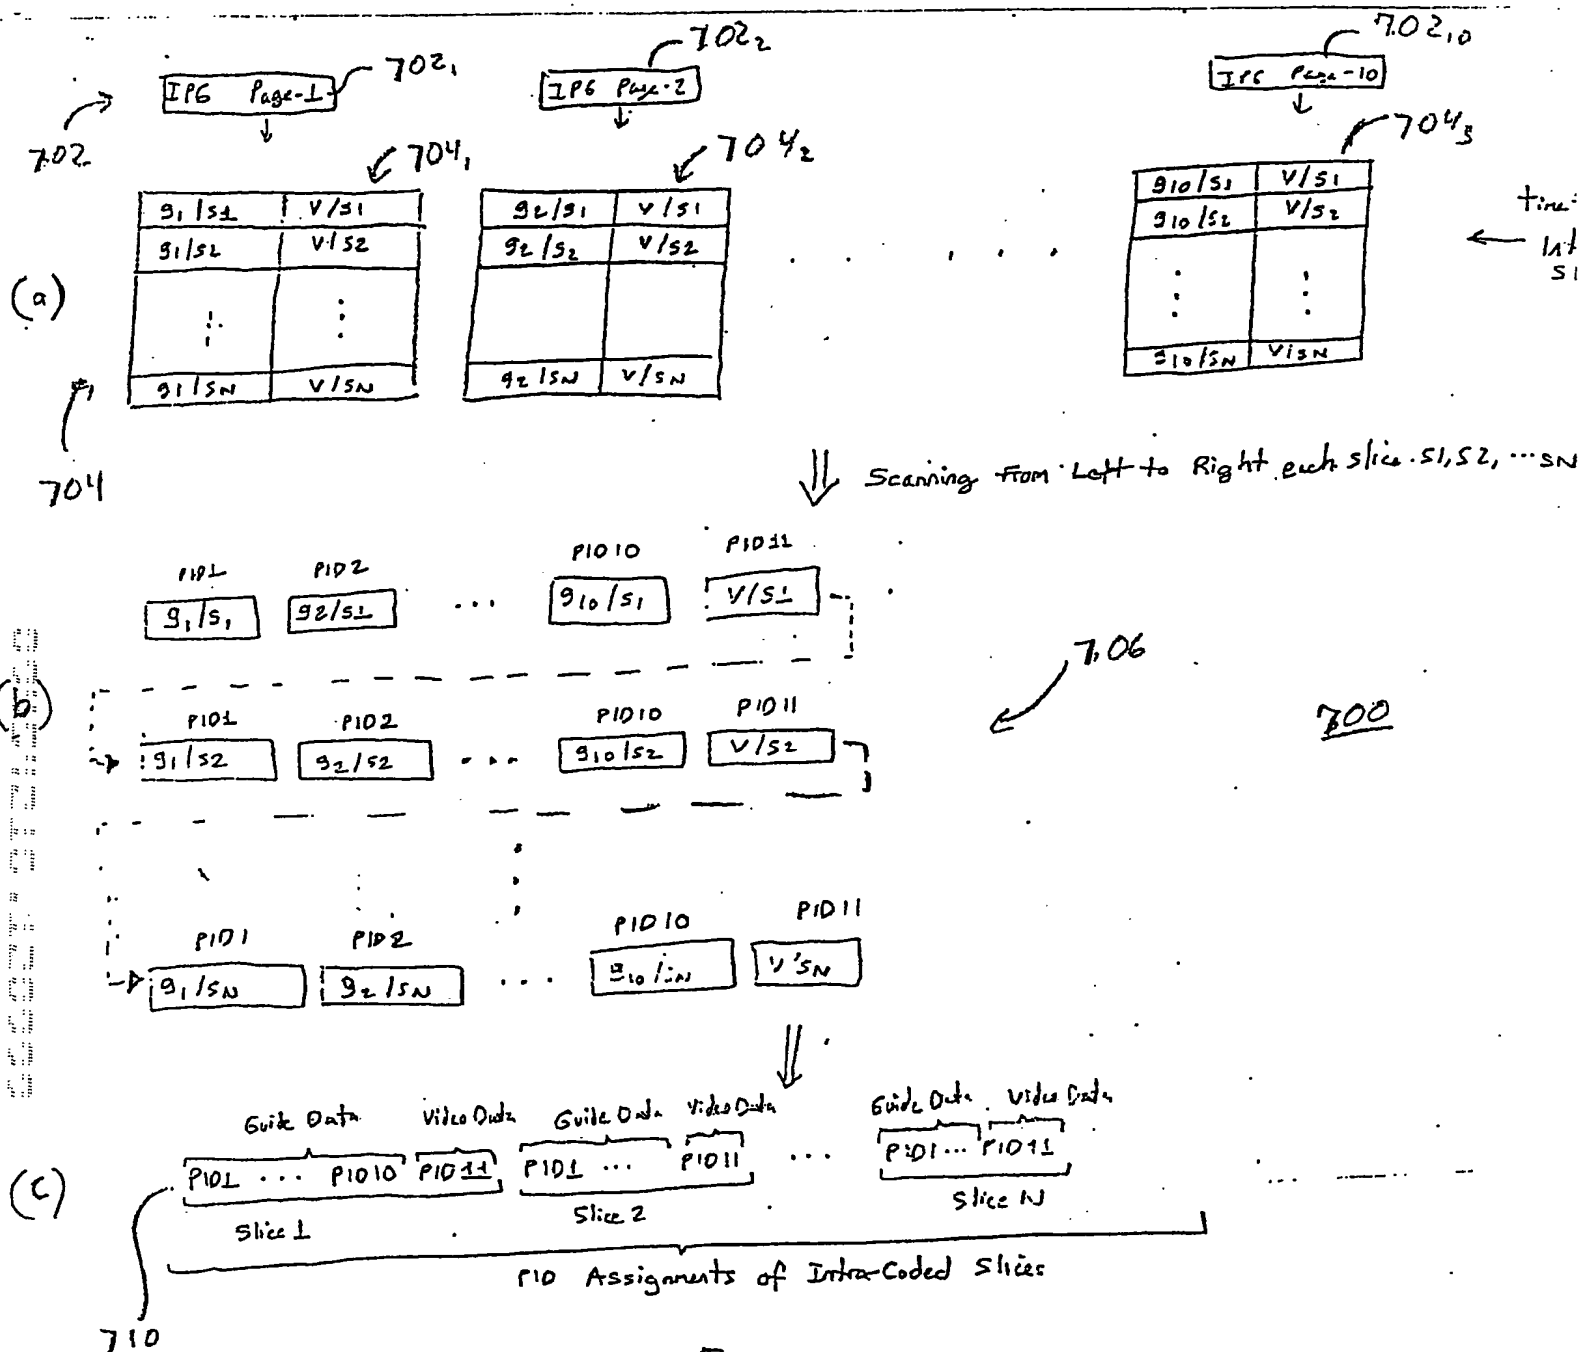 702₁
702₂
702₁₀
IPG Page-1
IPG Page-2
IPG Page-10
702
704₁
704₂
704₃
g1/s1 V/s1
g1/s2 V/s2
g1/sN V/sN
g2/s1 V/s1
g2/s2 V/s2
g2/sN V/sN
g10/s1 V/s1
g10/s2 V/s2
g10/sN V/sN
(a)
704
Scanning From Left to Right each slice s1, s2, ... sN
PID1 PID2 PID10 PID11
g1/s1 g2/s1 ... g10/s1 V/s1
706
(b)
700
PID1 PID2 PID10 PID11
g1/s2 g2/s2 ... g10/s2 V/s2
PID1 PID2 PID10 PID11
g1/sN g2/sN ... g10/sN V/sN
Guide Data Video Data Guide Data Video Data Guide Data Video Data
(c)
PID1 ... PID10 PID11 PID1 ... PID11 ... PID1 ... PID11
Slice 1 Slice 2 Slice N
PID Assignments of Intra-Coded Slices
710